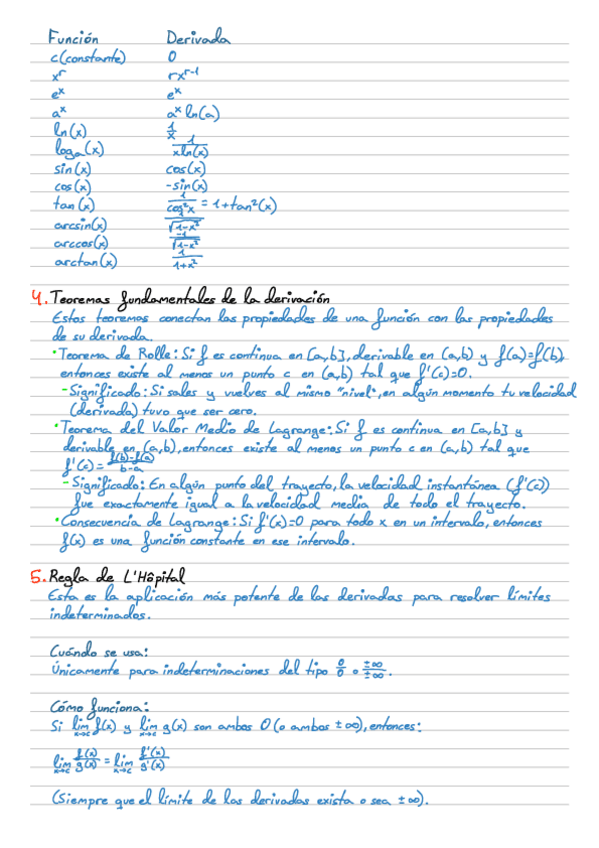 Función Derivada
c(constante) 0
x^r rx^(r-1)
e^x e^x
a^x a^x ln(a)
ln(x) 1/x
log_a(x) 1/(x ln(x))
sin(x) cos(x)
cos(x) -sin(x)
tan(x) 1/cos²x = 1+tan²(x)
arcsin(x) 1/√(1-x²)
arccos(x) -1/√(1-x²)
arctan(x) 1/(1+x²)
4. Teoremas fundamentales de la derivación
Estos teoremas conectan las propiedades de una función con las propiedades
de su derivada.
• Teorema de Rolle: Si f es continua en [a,b], derivable en (a,b) y f(a)=f(b),
entonces existe al menos un punto c en (a,b) tal que f'(c)=0.
- Significado: Si sales y vuelves al mismo "nivel", en algún momento tu velocidad
(derivada) tuvo que ser cero.
• Teorema del Valor Medio de Lagrange: Si f es continua en [a,b] y
derivable en (a,b), entonces existe al menos un punto c en (a,b) tal que
f'(c) = (f(b)-f(a))/(b-a)
- Significado: En algún punto del trayecto, la velocidad instantánea (f'(c))
fue exactamente igual a la velocidad media de todo el trayecto.
• Consecuencia de Lagrange: Si f'(x)=0 para todo x en un intervalo, entonces
f(x) es una función constante en ese intervalo.
5. Regla de L'Hôpital
Esta es la aplicación más potente de las derivadas para resolver límites
indeterminados.
Cuándo se usa:
Únicamente para indeterminaciones del tipo 0/0 o ±∞/±∞.
Cómo funciona:
Si lim x→c f(x) y lim x→c g(x) son ambos 0 (o ambos ±∞), entonces:
lim x→c f(x)/g(x) = lim x→c f'(x)/g'(x)
(Siempre que el límite de las derivadas exista o sea ±∞).